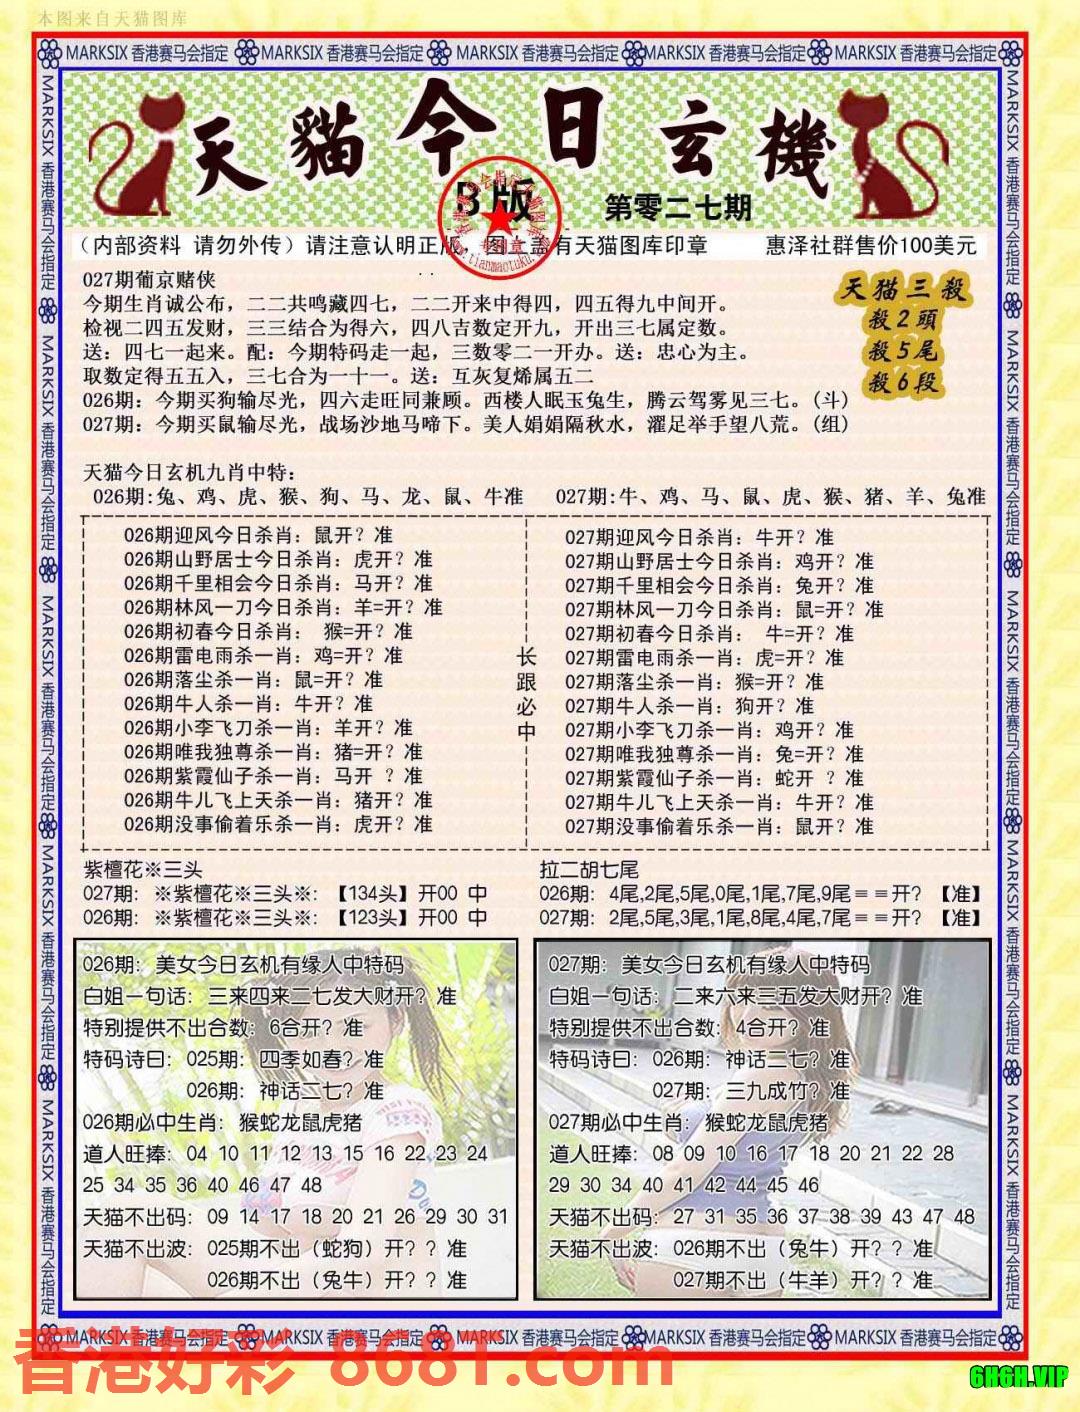 本图来自天猫图库
MARKSIX 香港赛马会指定 MARKSIX 香港赛马会指定 MARKSIX 香港赛马会指定 MARKSIX 香港赛马会指定 MARKSIX 香港赛马会指定
天貓今日玄機
B版
第零二七期
（内部资料 请勿外传）请注意认明正版，图上盖有天猫图库印章 惠泽社群售价100美元
027期葡京赌侠
今期生肖诚公布，二二共鸣藏四七，二二开来中得四，四五得九中间开。
检视二四五发财，三三结合为得六，四八吉数定开九，开出三七属定数。
送：四七一起来。配：今期特码走一起，三数零二一开办。送：忠心为主。
取数定得五五入，三七合为一十一。送：互灰复烯属五二
天猫三殺
殺2頭
殺5尾
殺6段
026期：今期买狗输尽光，四六走旺同兼顾。西楼人眠玉兔生，腾云驾雾见三七。(斗)
027期：今期买鼠输尽光，战场沙地马啼下。美人娟娟隔秋水，濯足举手望八荒。(组)
天猫今日玄机九肖中特：
026期:兔、鸡、虎、猴、狗、马、龙、鼠、牛准 027期:牛、鸡、马、鼠、虎、猴、猪、羊、兔准
026期迎风今日杀肖：鼠开？准
026期山野居士今日杀肖：虎开？准
026期千里相会今日杀肖：马开？准
026期林风一刀今日杀肖：羊=开？准
026期初春今日杀肖： 猴=开？准
026期雷电雨杀一肖：鸡=开？准
026期落尘杀一肖：鼠=开？准
026期牛人杀一肖：牛开？准
026期小李飞刀杀一肖：羊开？准
026期唯我独尊杀一肖：猪=开？准
026期紫霞仙子杀一肖：马开 ？准
026期牛儿飞上天杀一肖：猪开？准
026期没事偷着乐杀一肖：虎开？准
长跟必中
027期迎风今日杀肖：牛开？准
027期山野居士今日杀肖：鸡开？准
027期千里相会今日杀肖：兔开？准
027期林风一刀今日杀肖：鼠=开？准
027期初春今日杀肖： 牛=开？准
027期雷电雨杀一肖：虎=开？准
027期落尘杀一肖：猴=开？准
027期牛人杀一肖：狗开？准
027期小李飞刀杀一肖：鸡开？准
027期唯我独尊杀一肖：兔=开？准
027期紫霞仙子杀一肖：蛇开 ？准
027期牛儿飞上天杀一肖：牛开？准
027期没事偷着乐杀一肖：鼠开？准
紫檀花※三头
027期：※紫檀花※三头※:【134头】开00 中
026期：※紫檀花※三头※:【123头】开00 中
拉二胡七尾
026期：4尾,2尾,5尾,0尾,1尾,7尾,9尾==开？【准】
027期：2尾,5尾,3尾,1尾,8尾,4尾,7尾==开？【准】
026期：美女今日玄机有缘人中特码
白姐一句话：三来四来二七发大财开？准
特别提供不出合数：6合开？准
特码诗曰：025期：四季如春？准
026期：神话二七？准
026期必中生肖：猴蛇龙鼠虎猪
道人旺捧：04 10 11 12 13 15 16 22 23 24
25 34 35 36 40 46 47 48
天猫不出码：09 14 17 18 20 21 26 29 30 31
天猫不出波：025期不出（蛇狗）开？？准
026期不出（兔牛）开？？准
027期：美女今日玄机有缘人中特码
白姐一句话：二来六来三五发大财开？准
特别提供不出合数：4合开？准
特码诗曰：026期：神话二七？准
027期：三九成竹？准
027期必中生肖：猴蛇龙鼠虎猪
道人旺捧：08 09 10 16 17 18 20 21 22 28
29 30 34 40 41 42 44 45 46
天猫不出码：27 31 35 36 37 38 39 43 47 48
天猫不出波：026期不出（兔牛）开？？准
027期不出（牛羊）开？？准
MARKSIX 香港赛马会指定 MARKSIX 香港赛马会指定 MARKSIX 香港赛马会指定 MARKSIX 香港赛马会指定 MARKSIX 香港赛马会指定
香港好彩 8681.com
6H6H.VIP